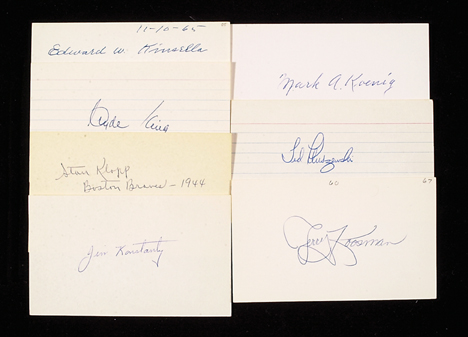 11-10-65
Edward W. Kinsella
Clyde King
Stan Klopp
Boston Braves - 1944
Jim Konstanty
Mark A. Koenig
Ted Kluszewski
60 67
Jerry Koosman